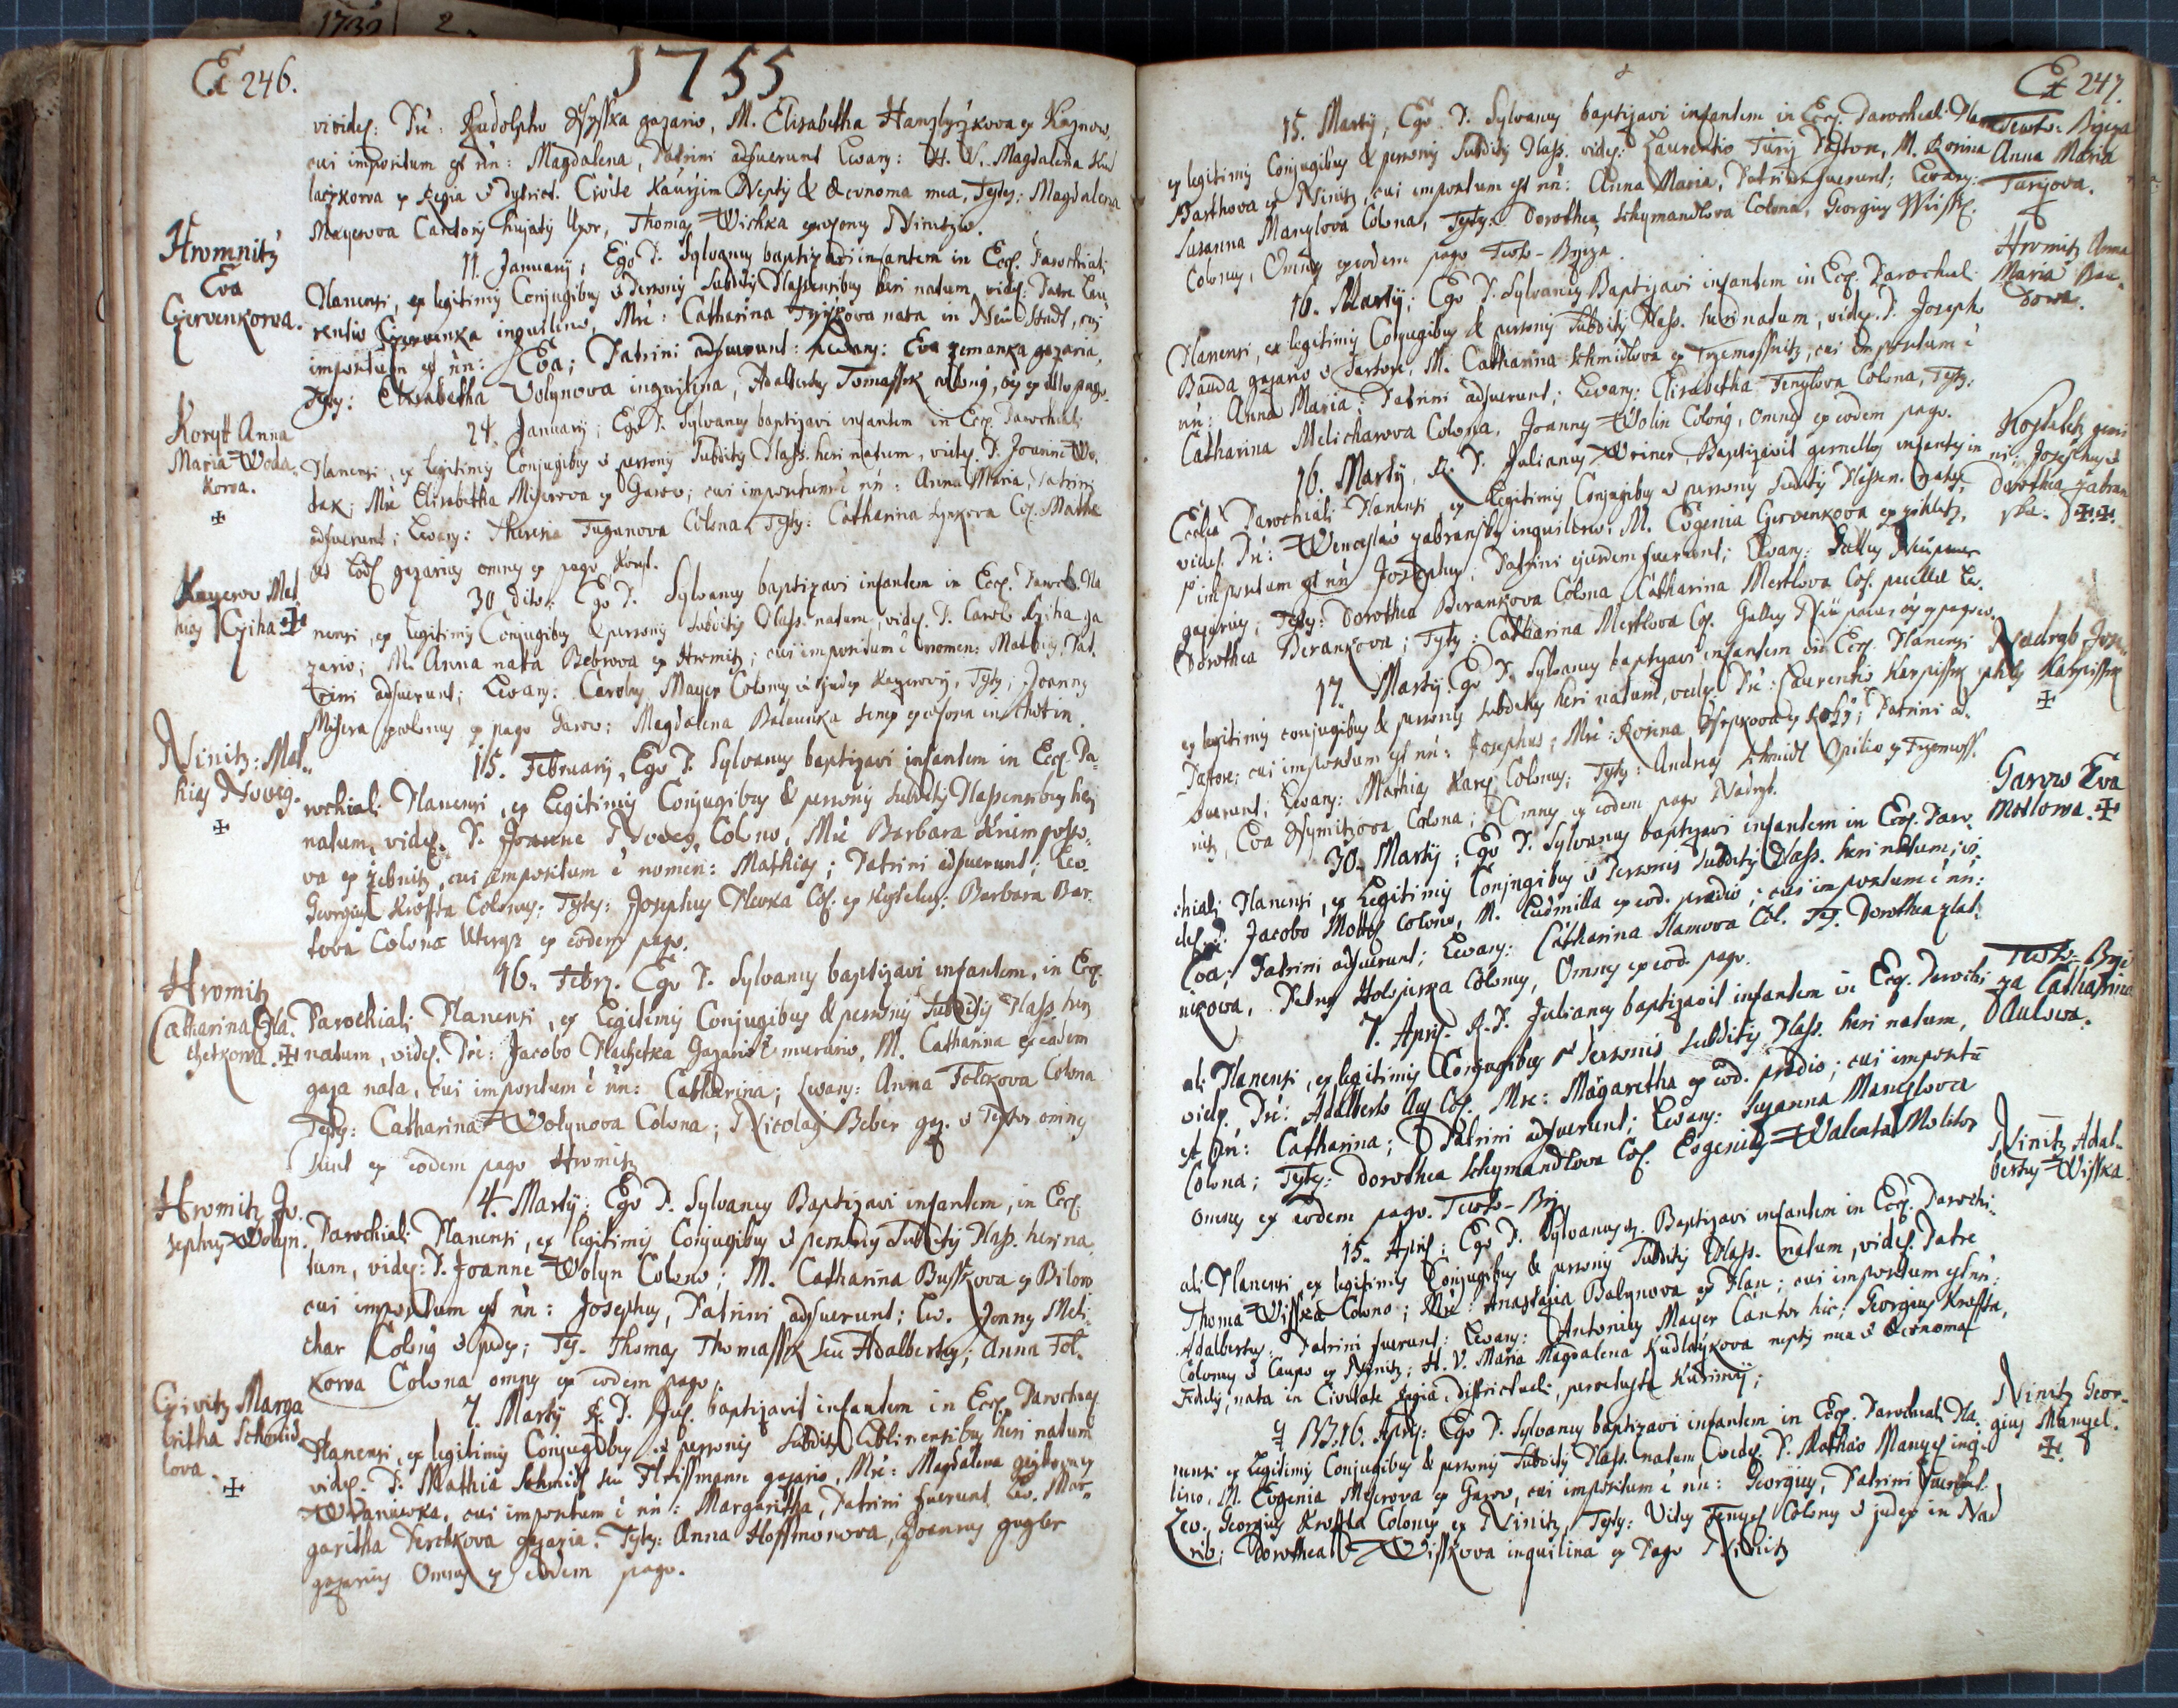 1739 2
Et 246.
1755
videlz: Pre: Rudolpho gazario, M. Elisabetha ex Kaznow,
cui impositum est nn: Magdalena, Patrini adfuerunt Levans: H. V. Magdalena Kud
laczkova ex Regia & district. Civite Kaurzim Neptis & Oeconoma mea, Testes: Magdalena
Mayerova Cantoris hujatis Uxor, Thomas Wischka ex Ninitz.
Hromnitz
Eva
Czervenkova.
11. January; Ego P. Sylvanus baptizavi infantem in Eccl. Parochiali
Planensi, ex legitimis Conjugibus & Personis Subditis Plassensibus heri natum, videl: Patre Lau
rentio Czervenka inquilino, Mre: Catharina nata in Neustadt, cui
impositum est nn: Eva; Patrini adfuerunt: Levans: Eva zemanka gazaria,
Testes: Elisabetha Volynova inquilina, Adalbertus Tomassek colonus, oes ex dicto pago.
Korytt Anna
Maria Woda
kova.
24. January; Ego P. Sylvanus baptizavi infantem in Eccl. Parochiali
Planensi, ex legitimis Conjugibus & personis Subditis Plass. heri natum, videl. P. Joanne Wo,
dak; Mre Elisabetha Miserova ex Garow; cui impositum e nn: Anna Maria, Patrini
adfuerunt; Levans: Theresia Tuzanova Colona, Testes: Catharina Col. Mathe
us gazarius omnes ex pago Koryt.
Kazerov Mat
hias Cziha
30 dito: Ego P. Sylvanus baptizavi infantem in Eccl. Paroch. Pla
nensi, ex legitimis Conjugibus & personis Subditis Plass. natum, videl. P. Carolo Cziha ga
zario; M. Anna nata Bebrova ex Hromitz; cui impositum e nomen: Mathias, Pat,
rini adfuerunt; Levans: Carolus Mayer Colonus & judex Kazerovii, Testes; Joannes
Misera ex pago Garow; Magdalena Balounka in Chotin.
Ninitz: Mat,,
hias Noveg.
15. February, Ego P. Sylvanus baptizavi infantem in Eccl. Pa,
rochiali Planensi, ex Legitimis Conjugibus & personis Subditis Plassensibus heri
natum, videl. P. Joanne Noveg Colono, Mre Barbara
va ex zebnitz, cui impositum e nomen: Mathias; Patrini adfuerunt; Lev.
Georgius Kroffta Colonus; Testes: Josephus Plevka Col. ex Barbara Bar,
tova Colona Uterque ex eodem pago.
Hromitz
Catharina Pla.
chetkova.
16. Febr. Ego P. Sylvanus baptizavi infantem, in Eccl.
Parochiali Planensi, ex Legitimis Conjugibus & personis Subditis Plass. heri
natum, videl. Pre: Jacobo Plachetka Gazario & murario, M. Catharina ex eadem
gaza nata, cui impositum e nn: Catharina; Levans: Anna Folckova Colona
Testes: Catharina Wolynova Colona; Nicolaus Beber gaz. & Textor omnes
sunt ex eodem pago Hromitz
Hromitz Jo.
sephus Wolyn.
4. Marty: Ego P. Sylvanus Baptizavi infantem, in Eccl.
Parochiali Planensi, ex legitimis Conjugibus & personis Subditis Plass. heri na,
tum, videl: P. Joanne Wolyn Colono; M. Catharina Busskova ex Bilow
cui impositum est nn: Josephus, Patrini adfuerunt; Lev. Joannes Meli,
char Colonus & judex; Tes. Thomas Thomassek seu Adalbertus; Anna Fol,
kova Colona omnes ex eodem pago.
Czivitz Marga
britha Schmid
lova.
7. Marty R. P. Jul. baptizavit infantem in Eccl. Parochiali
Planensi, ex legitimis Conjugibus & personis Subditis Liblinensibus heri natum
videl. P. Mathia Schmidl seu Fleissmann gazario, Mre: Magdalena ex
Wranowka, cui impositum e nn: Margaritha, Patrini fuerunt Lev. Mar,
garitha Perchkova gazaria. Testes: Anna Hoffmonova, Joannes gugler
gazarius Omnes ex eodem pago.
Et 247.
15. Marty, Ego P. Sylvanus baptizavi infantem in Eccl. Parochiali Plan
ex legitimis Conjugibus & personis Subditis Plass. videl: Laurentio Turij Pastore, M. Rosina
Barthova ex Ninitz, cui impositum est nn: Anna Maria, Patrini fuerunt; Levans:
Susanna Manzlova Colona, Testes: Dorothea Schymandlova Colona, Georgius Wissk
Colonus, Omnes ex eodem pago Teuto-Brziza.
Teuto: Brziza
Anna Maria
Turijova.
16. Marty; Ego P. Sylvanus Baptizavi infantem in Eccl. Parochiali
Planensi, ex legitimis Conjugibus & personis Subditis Plass. heri natum, videl. P. Josepho
Bauda gazario & Sartore, M. Catharina Schmidlova ex Trzemossnitz, cui impositum e
nn: Anna Maria; Patrini adfuerunt; Levans: Elisabetha Fenzlova Colona, Testes:
Catharina Melicharova Colona, Joannes Wolin Colonus, Omnes ex eodem pago.
Hromitz Anna
Maria Bau,
dova.
16. Marty, R. P. Julianus Weiner, Baptizavit gemellos infantes in
Ecclia Parochiali Planensi ex Legitimis Conjugibus & personis Subditis Plassen. natos,
videl. Pre: Wenceslao zabransky inquilino, M. Eugenia Czervenkova ex
1o impositum est nn Josephus; Patrini ejusdem fuerunt; Levans: Gallus Neupauer
gazarius; Testes: Dorothea Berankova Colona Catharina Mertlova Col. puellae Lev.
Dorothea Berankova; Testes: Catharina Mertlova Col. Gallus Neupauer oes ex pago eo.
Kosteletz gemi
ni: Josephus &
Dorothea zabran
ska.
17. Marty. Ego P. Sylvanus baptizavi infantem in Eccl. Planensi
ex legitimis conjugibus & personis subditis heri natum, videl. Pre: Laurentio Karpissek
Pastore; cui impositum est nn: Josephus; Mre: Rosina Patrini ad,
fuerunt; Levans: Mathias Colonus; Testes: Andreas Schmidl Opilio ex Trzemoss,
nitz, Eva Colona; Omnes ex eodem pago Nadryb.
Nadryb Jos,
ephus Karpissek
30. Marty; Ego P. Sylvanus baptizavi infantem in Eccl. Paro,
chiali Planensi, ex Legitimis Conjugibus & Personis subditis Plass. heri natum, vi,
del. P. Jacobo Mottl Colono, M. Ludmilla ex eod. praedio; cui impositum e nn:
Eva; Patrini adfuerunt; Levans: Catharina Hamova Col. Tes. Dorothea zlat,
nikova, Petrus Colonus, Omnes ex eod. pago.
Garow Eva
Motlowa.
7. April. R. P. Julianus baptizavit infantem in Eccl. Parochi
ali Planensi, ex legitimis Conjugibus & Personis Subditis Plass. heri natum,
videl. Pre: Adalberto Aul Col. Mre: Margaretha ex eod. praedio; cui impositu
est nn: Catharina; Patrini adfuerunt; Levans: Susanna Manzlova
Colona; Testes: Dorothea Schymandlova Col. Eugenius Walenta Molitor
omnes ex eodem pago. Teuto-Brz
Teuto: Brzi
za Catharina
Aulova.
15. April; Ego P. Sylvanus Baptizavi infantem in Eccl. Parochi,
ali Planensi ex legitimis Conjugibus & personis Subditis Plass. natum, videl. Patre
Thoma Wisska Colono; Mre: Anastasia Balynova ex Plan; cui impositum est nn:
Adalbertus; Patrini fuerunt: Levans: Antonius Mayer Cantor hic; Georgius Kroffta,
Colonus & Caupo ex Ninitz; H. V. Maria Magdalena Kudlaczkova neptis mea & Oeconoma
Fidelis, nata in Civitate Regia Districtuali, Kurimii;
Ninitz Adal,,
bertus Wisska.
NB. 16. April: Ego P. Sylvanus baptizavi infantem in Eccl. Parochiali Pla,
nensi ex Legitimis Conjugibus & personis Subditis Plass. natum videl. P. Mathaeo Manzel inqui
lino, M. Eugenia Miserova ex Garow, cui impositum e nn: Georgius, Patrini fuerunt.
Lev. Georgius Kroffta Colonus ex Ninitz, Testes: Vitus Fenzel Colonus & judex in Nad
rib; Dorothea Wisskova inquilina ex Pago Ninitz
Ninitz Geor,
gius Manzel.